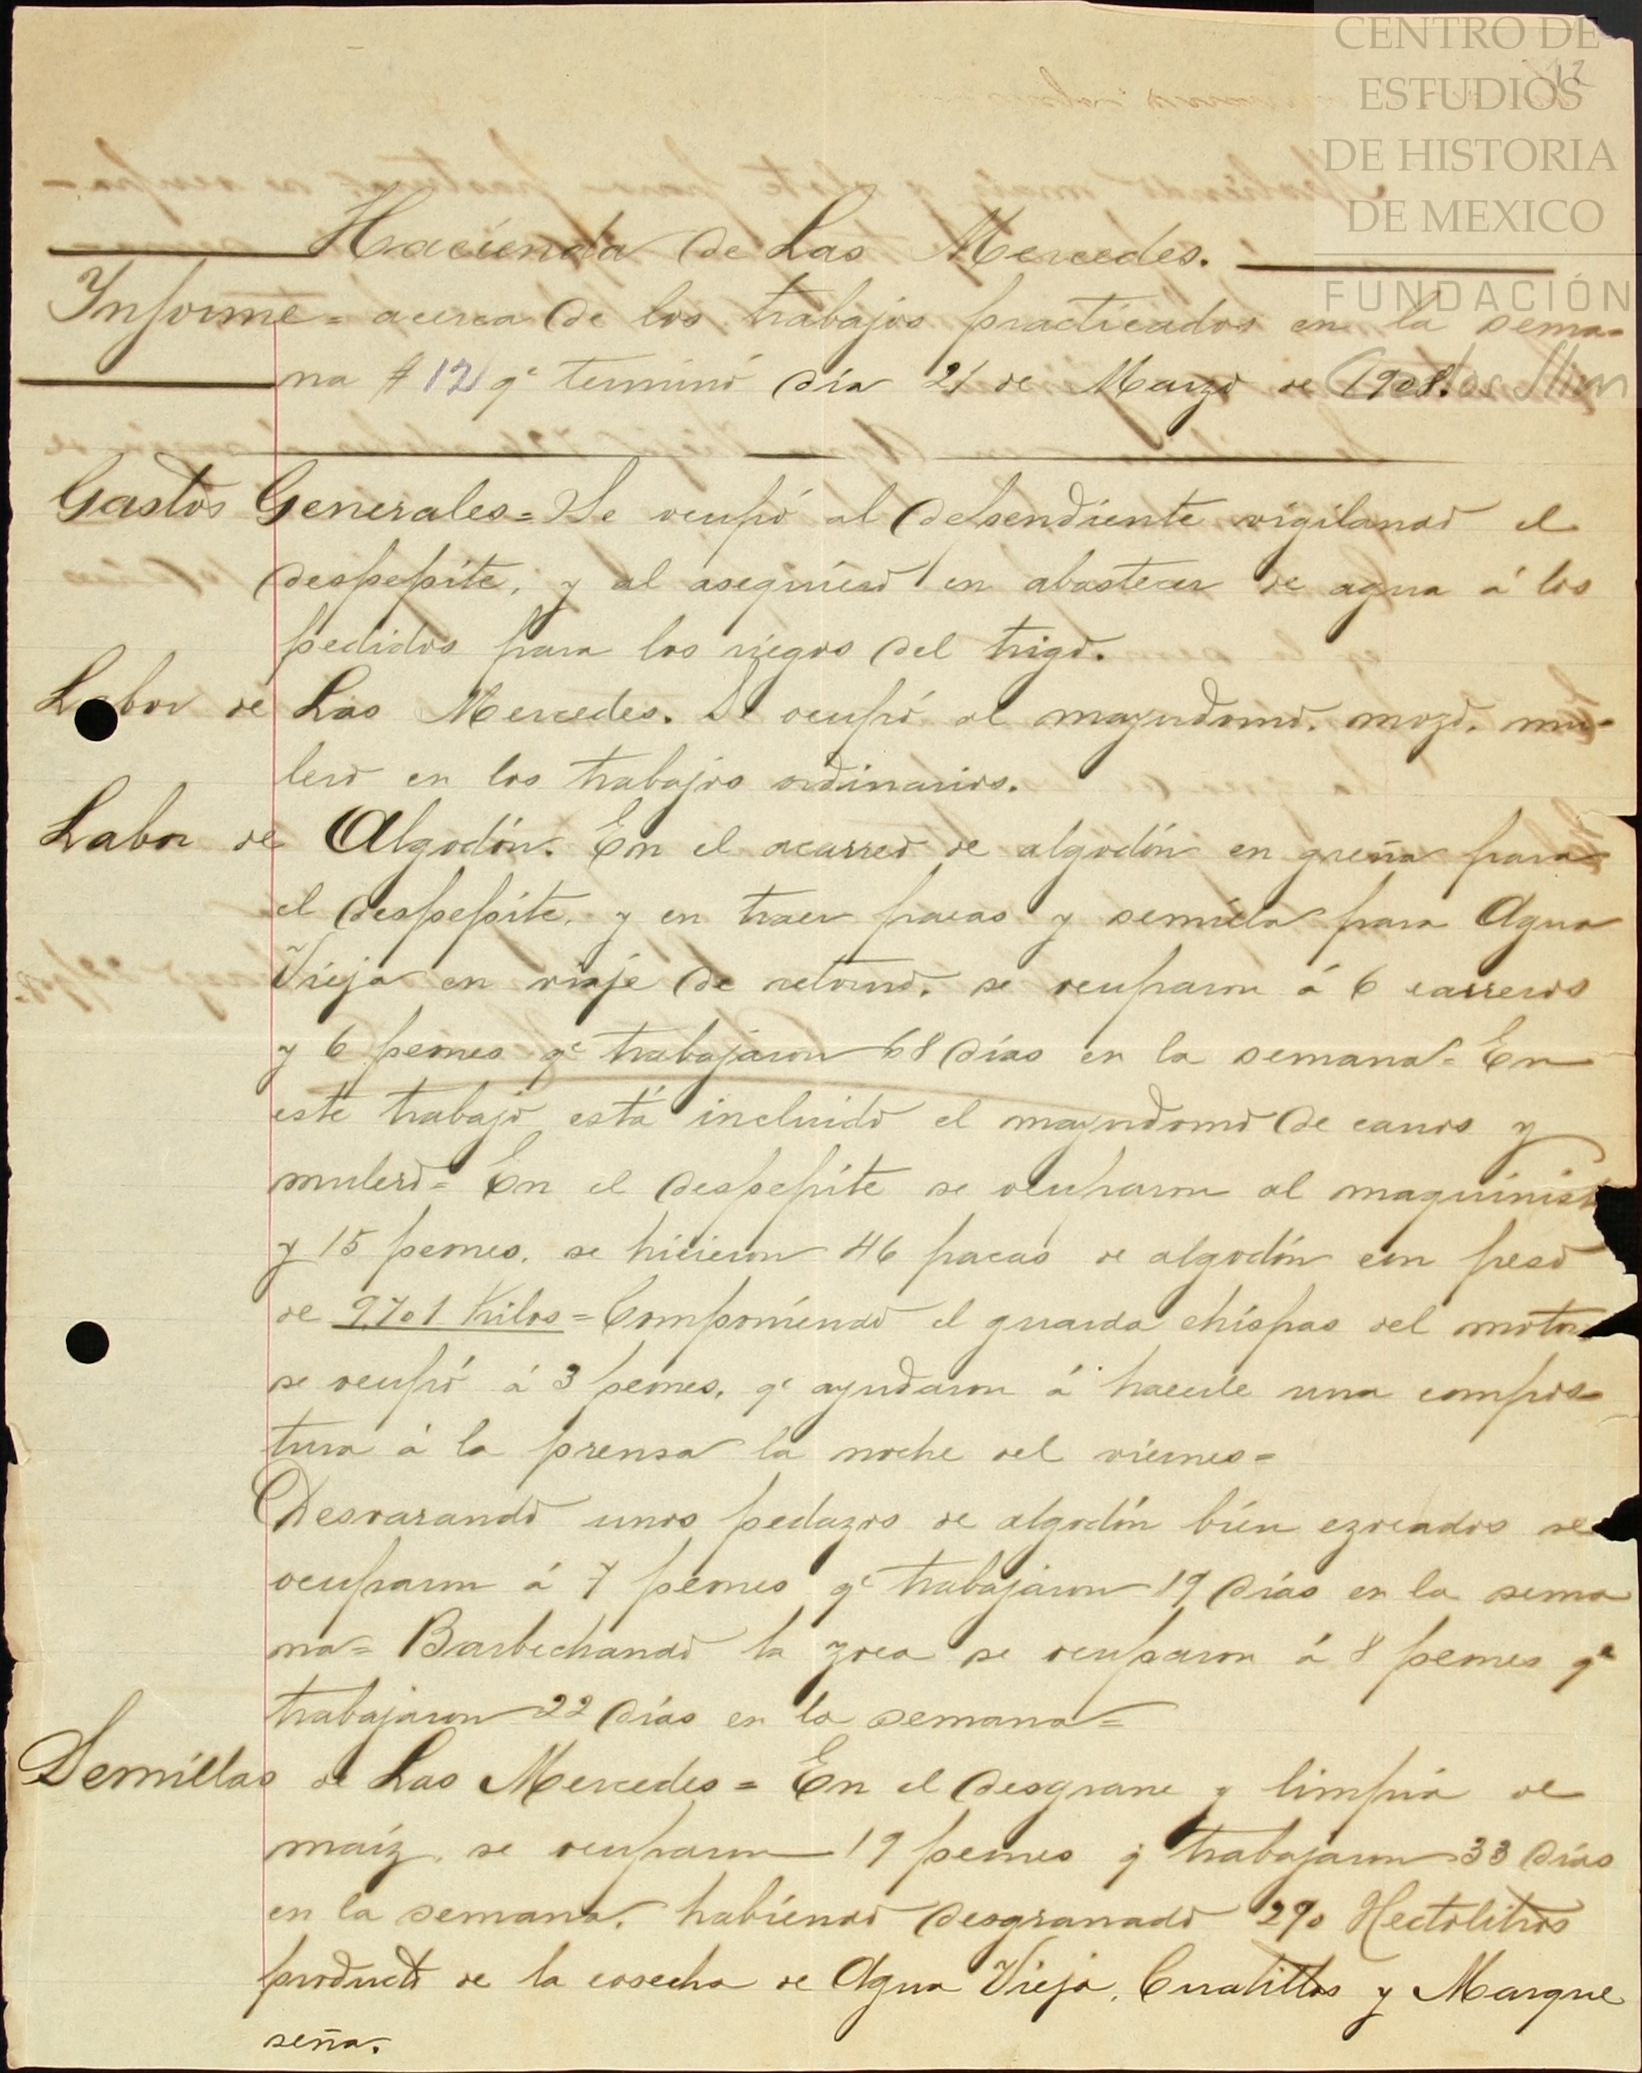 CENTRO DE
ESTUDIOS
DE HISTORIA
DE MEXICO
FUNDACIÓN
Carlos Slim
12
Hacienda de Las Mercedes.
Informe = acerca de los trabajos practicados en la sema-
na # 12 qe terminó día 21 de Marzo de 1908.
Gastos Generales = Se ocupó al dependiente vigilando el
despepite, y al asequiero en abastecer de agua á los
pedidos para los riegos del trigo.
Labor de Las Mercedes. Se ocupó al mayordomo, mozo, mu-
lero en los trabajos ordinarios.
Labor de Algodón. En el acarreo de algodón en greña para
el despepite, y en traer pacas y semilla para Agua
Vieja en viaje de retorno, se ocuparon á 6 carreros
y 6 peones qe trabajaron 68 días en la semana = En
este trabajo está incluido el mayordomo de carros y
mulero = En el despepite se ocuparon al maquinist
y 15 peones, se hicieron 46 pacas de algodón con peso
de 9701 Kilos = Componiendo el guarda chispas del motor
se ocupó á 3 peones, qe ayudaron á hacerle una compos-
tura á la prensa la noche del viernes =
Desvarando unos pedazos de algodón bien ezocados se
ocuparon á 7 peones qe trabajaron 19 días en la sema
na = Barbechando la zoca se ocuparon á 8 peones qe
trabajaron 22 días en la semana =
Semillas de Las Mercedes = En el desgrane y limpia de
maíz, se ocuparon 19 peones q trabajaron 33 días
en la semana, habiendo desgranado 290 Hectolitros
producto de la cosecha de Agua Vieja, Cuatillos y Marque
seña.